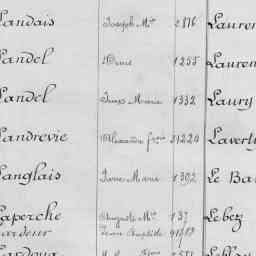 Landais Joseph Mie 2816 Lauren
Landel Denis 1255 Lauren
Landel Jean Marie 1332 Laury
Landrevie Alexandre fçois 21220 Laverty
Langlais Pierre Marie 1392 Le Ba
Laperche Auguste Mie 137 Lebez
Lardeur Jean Baptiste
Lardoux